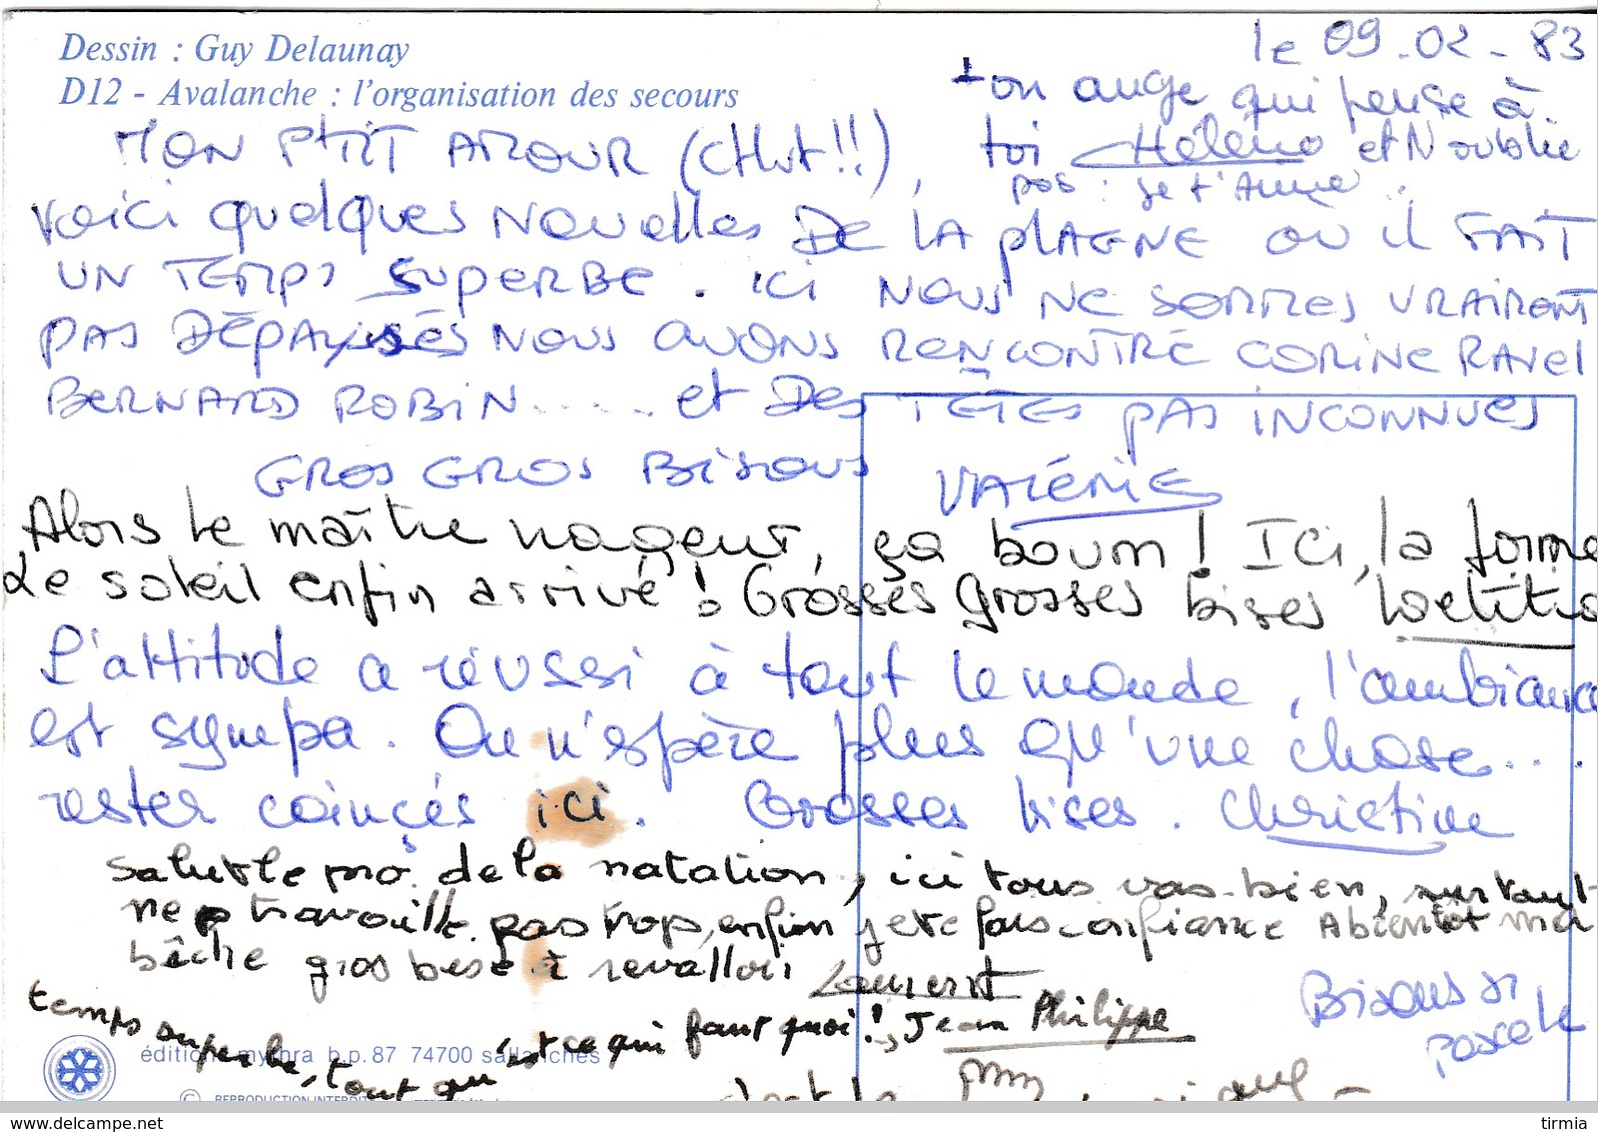 Dessin : Guy Delaunay
D12 - Avalanche : l'organisation des secours
le 09-02-83
ton ange qui pense à
toi Hélène et N'oublie
pas : je t'Aime..
MON P'TIT AMOUR (CHut!!),
Voici quelques Nouvelles DE LA PLAGNE OU il FAIT
UN TEMPS SUPERBE. ici NOUS NE SOMMES VRAIMENT
PAS DÉPAYSÉS NOUS AVONS RENCONTRE CORINE RAVEl
BERNARD ROBIN..... et DES TÊTES PAS INCONNUES
GROS GROS BISOUS VALÉRIE
Alors le maître nageur, ça boum ! Ici, la forme
Le soleil enfin arrivé ! Grosses grosses bises Laetitia
L'attitude a réussi à tout le monde, l'ambiance
est sympa. On n'espère plus qu'une chose...
rester coinçés ici. Grosses bises. Christine
Salut le pro de la natation, ici tous vas bien, surtout
ne travaille pas trop, enfin je te fais confiance A bientôt ma
bêche gros bise à Levallois Laurent
Bisous
Pascale
temps superbe, tout ce qui faut quoi!, Jean Philippe
éditions mythra b.p. 87 74700 sallanches
© REPRODUCTION INTERDITE
www.delcampe.net
tirmia